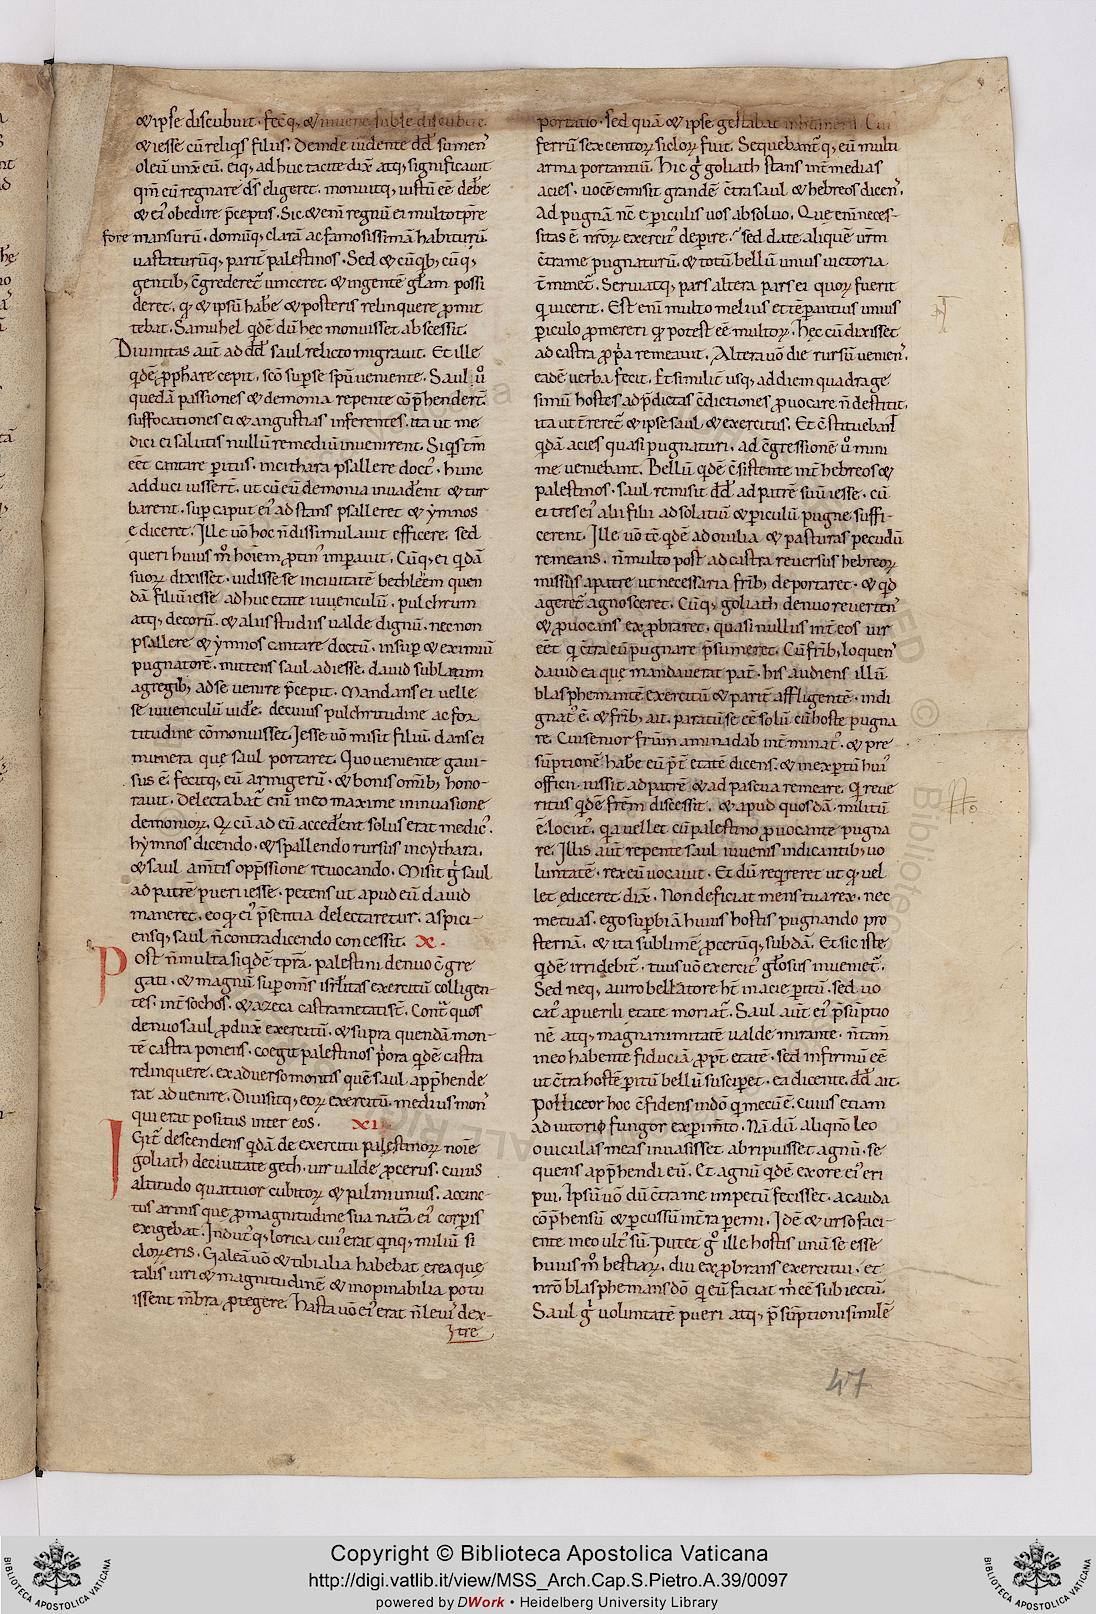 & ipse discubuit. fecitq; & iuuene sub se discubere.
& iesse cũ reliq̃s filiis. Deinde uidente dd̃ sumens
oleũ unx̃ eũ. eiq; adhuc tacite dix̃ atq; significauit
qm̃ eũ regnare dñs eligeret. monuitq; iustũ eẽ deb̃e
& ei' obedire p̃ceptis. Sic & eni regnũ ei multo tp̃re
fore mansurũ. domũq; clarã ac famosissimã habiturũ.
uastaturũq; parit̃ palestinos. Sed & cũ qb; cũq;
gentib; c̃grederet̃ uinceret. & ingentẽ gl̃am possi
deret. q̃ & ipsũ hab̃e & posteris relinquere p̃mit
tebat. Samuhel qdẽ dũ hẽc monuisset abscessit.
Diuinitas aut̃ ad dd̃ saul relicto migrauit. Et ille
qdẽ p̃ph̃are cepit. sc̃o sup̃ se sp̃u ueniente. Saul ũ
quedã passiones & demonia repente cõp̃hendert̃.
suffocationes ei & angustias inferentes. ita ut me
dici ei salutis nullũ remediũ inuenirent. Siqs tm̃
eẽt cantare p̃itus. in cithara psallere doct'. hunc
adduci iusserẽt. ut cũ eũ demonia inuad̃ent & tur
barent. sup̃ caput ei' adstans psalleret & ẏmnos
ediceret. Ille uõ hoc ñ dissimulauit efficere. sed
queri huius m̃ hoĩem p̃tin' imp̃auit. Cũq; ei qdã
suorũ dixisset. uidisse se in ciuitatẽ bethleẽm quen
dã filiũ iesse adhuc etate iuuenculũ. pulchrum
atq; decorũ. & aliis studiis ualde dignũ. nec non
psallere & ẏmnos cantare doctũ. insup̃ & eximiũ
pugnatorẽ. mittens saul ad iesse. dauid sublatum
a gregib; ad se uenire p̃cepit. Mandans ei uelle
se iuuenculũ uid̃e. de cuius pulchritudine ac for
titudine cõmonuisset. Iesse uõ misit filiũ. dans ei
munera que saul portaret. Quo ueniente gaui-
sus ẽ. fecitq; eũ armigerũ. & bonis om̃ib; hono-
rauit. Delectabat̃ eni in eo maxime in inuasione
demoniorũ. Q̃ cũ ad eũ acced̃ent solus erat medic'.
hẏmnos dicendo. & spallendo rursus in cẏthara.
& saul am̃tis opp̃ssione reuocando. Misit g̃ saul
ad patrẽ pueri iesse. petens ut apud eũ dauid
maneret. eo q̃ ei' p̃sentia delectaretur. aspici-
ensq; saul ñ contradicendo concessit. X.
Post ñ multa siqdẽ tp̃ra. palestini denuo c̃gre
gati. & magnũ sup̃ om̃s isrl̃itas exercitũ colligen-
tes. int̃ sochos. & azeca castrametati st̃. Cont̃ quos
denuo saul p̃dux̃ exercitũ. & supra quendã mon-
tẽ castra ponens. coegit palestinos p̃ora qdẽ castra
relinquere. ex aduerso montis quẽ saul app̃hende
rat aduenire. Diuisitq; eorũ exercitũ. medius mons
qui erat positus inter eos. XI.
Igit̃ descendens qdã de exercitu palestinorũ noĩe
goliath de ciuitate geth. uir ualde p̃cerus. cuius
altitudo quattuor cubitorũ & palmi unius. accinc-
tus armis que p̃ magnitudine sua nat̃a ei' corp̃is
exigebat. Indut'q; lorica. cui' erat q̃nq; miliũ si
clorũ eris. Galeã uõ & tibialia habebat erea que
talis uiri & magnitudinẽ & inopinabilia potu
issent m̃bra p̃tegere. Hasta uõ ei' erat ñ leui' dex-
tre
portatio. sed quã & ipse gestabat in humeris. Cui'
ferrũ sexcentorũ siclorũ fuit. Sequebant̃q; eũ multi
arma portantiũ. Hic g̃ goliath stans int̃ medias
acies. uocẽ emisit grandẽ c̃tra saul & hebreos dicens.
Ad pugnã nc̃ e p̃iculis uos absoluo. Que eni neces-
sitas ẽ nr̃orũ exercit' deperire? sed date aliquẽ ur̃m
c̃tra me pugnaturũ. & totũ bellũ unius uictoria
t̃minet̃. Seruiatq; pars altera parsei quorũ fuerit
q uicerit. Est eni multo melius et tẽp̃antius unius
p̃iculo p̃mereri q̃ potest eẽ multorũ. Hẽc cũ dixisset
ad castra p̃p̃a remeauit. Altera uõ die rursũ ueniens.
eadẽ uerba fecit. Et similit̃ usq; ad diem quadrage
simũ hostes ad p̃dictas c̃dictiones p̃uocare ñ destitit.
ita ut t̃reret̃ & ipse saul & exercitus. Et c̃stituebant̃
qdã acies quasi pugnaturi. ad c̃gressionẽ ũ mini
me ueniebant. Bellũ qdẽ c̃sistente int̃ hebreos &
palestinos. saul remisit dd̃ ad patrẽ suũ iesse. cũ
ei tres ei' alii filii ad solatiũ & p̃iculũ pugne suffi-
cerent. Ille uõ tẽ qdẽ ad ouilia & pasturas pecudũ
remeans. ñ multo post ad castra reuersus hebreorũ
missus a patre ut necessaria fr̃ib; deportaret. & qd̃
ageret̃ agnosceret. Cũq; goliath denuo reuertens
& p̃uocans exp̃braret. quasi nullus int̃ eos uir
eẽt q c̃tra eũ pugnare p̃sumeret. Cũ fr̃ib; loquens
dauid ea que mandauerat pat̃. his audiens illũ
blasphemantẽ exercitũ & parit̃ affligentẽ. indi
gnat' ẽ. & fr̃ib; ait. paratũ se eẽ solũ cũ hoste pugna
re. Cui senior fr̃um aminadab int̃minat'. & pre
sũptionẽ hab̃e eũ p̃t̃ etatẽ dicens. & inexp̃tũ hui'
officii. iussit ad patrẽ & ad pascua remeare. Q̃ reue
ritus qdẽ fr̃em discessit. & apud quosdã militũ
ẽ locut'. q̃a uellet cũ palestino p̃uocante pugna
re. Illis aut̃ repente saul iuuenis indicantib; uo
luntatẽ. rex eũ uocauit. Et dũ req̃reret ut q̃ uel
let ediceret dix̃. Non deficiat mens tua rex. nec
metuas. ego sup̃biã huius hostis pugnando pro
sternã. & ita sublimẽ p̃cerũq; subdã. Et sic iste
qdẽ irridebit̃. tuus uõ exercit' gl̃osus inueniet̃.
Sed neq; a uiro bellatore ht̃ in acie p̃itũ. sed uo
cat' a puerili etate moriat̃. Saul aut̃ ei' p̃sũptio
nẽ atq; magnanimitatẽ ualde mirante. ñ tam̃
in eo habente fiduciã p̃pt̃ etatẽ. sed infirmũ eẽ
ut c̃tra hostẽ p̃itũ bellũ suscip̃et. ea dicente. dd̃ ait.
Polliceor hoc c̃fidens in dõ q mecũ ẽ. cuius etiam
adiutorio fungor exp̃im̃to. Nã dũ aliqño leo
ouiculas meas inuasisset. abripuisset agnũ. se-
quens app̃hendi eũ. Et agnũ qdẽ ex ore ei' eri
pui. Ipsũ uõ dũ c̃tra me impetũ fecisset. a cauda
cõp̃hensũ & p̃cussũ int̃ra p̃emi. Idẽ & urso faci-
ente in eo ult' sũ. Putet g̃ ille hostis unũ se esse
huius m̃ bestiarũ. diu exp̃brans exercitui. et
nr̃o blasphemans dõ. q eũ faciat m̃ eẽ subiectũ.
Saul g̃ uoluntatẽ pueri atq; p̃sũptioni similẽ
47
Copyright © Biblioteca Apostolica Vaticana
http://digi.vatlib.it/view/MSS_Arch.Cap.S.Pietro.A.39/0097
powered by DWork • Heidelberg University Library
BIBLIOTECA APOSTOLICA VATICANA
BIBLIOTECA APOSTOLICA VATICANA